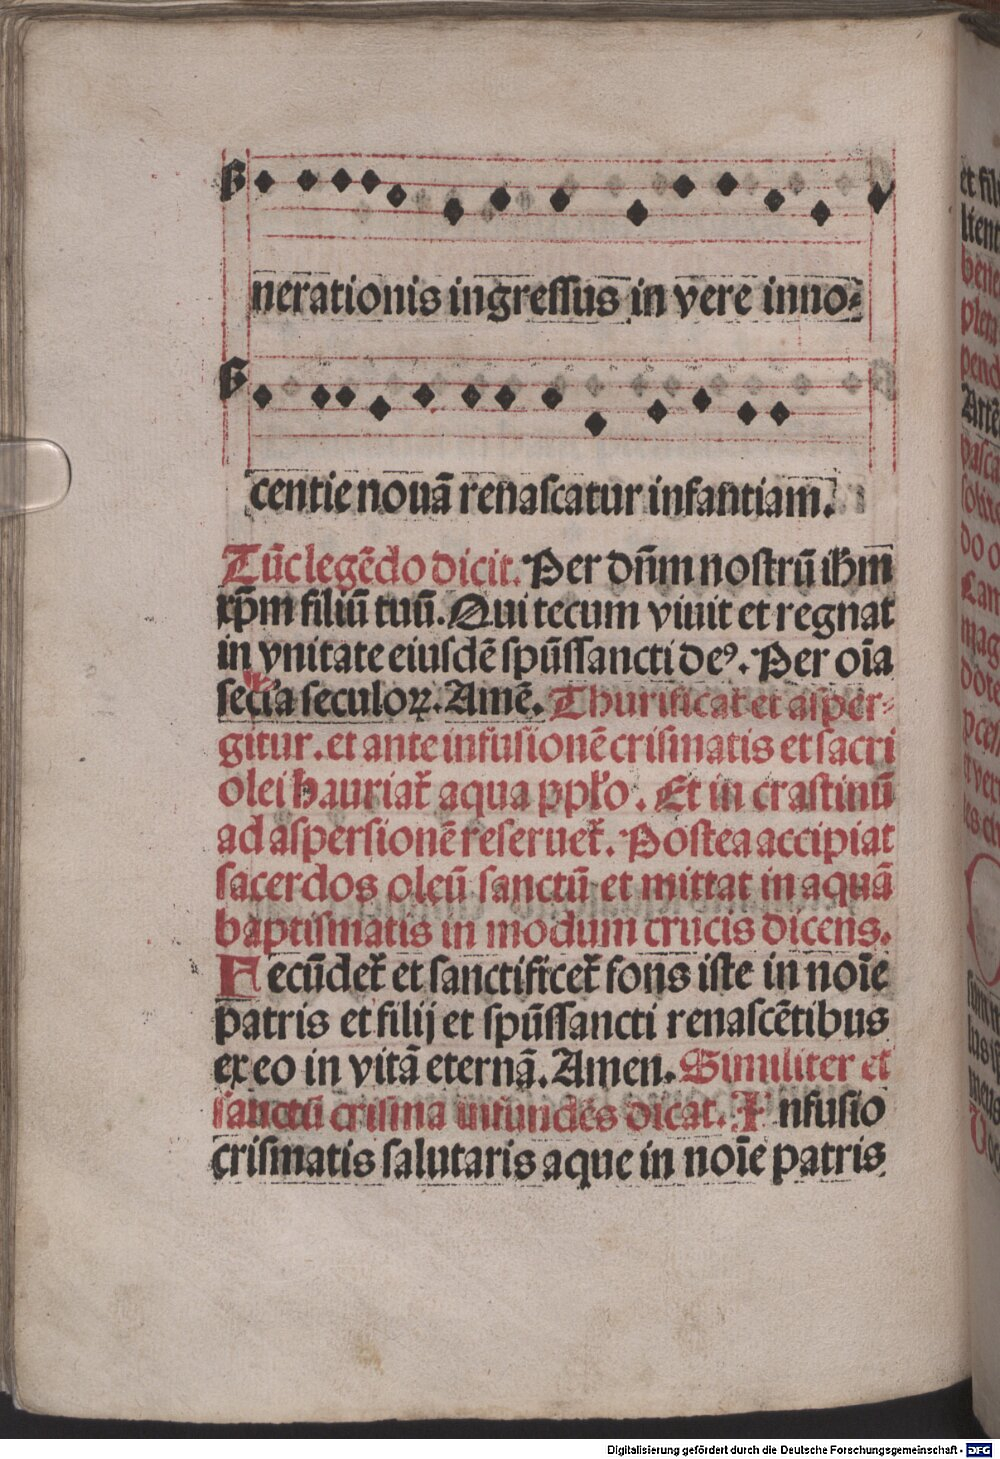 nerationis ingreſſus in vere inno⸗
centie nouā renaſcatur infantiam.
Tūc legēdo dicit. Per dn̄m noſtrū ih̄m
xp̄m filiū tuū. Qui tecum viuit et regnat
in vnitate eiuſdē ſpūſſancti deꝰ. Per oīa
ſecl̓a ſeculoꝝ. Amē. Thurificat et aſper⸗
gitur. et ante infuſionē criſmatis et ſacri
olei hauriat᷑ aqua ppl̓o. Et in craſtinū
ad aſperſionē reſeruet᷑. Poſtea accipiat
ſacerdos oleū ſanctū et mittat in aquā
baptiſmatis in modum crucis dicens.
Fecūdet᷑ et ſanctificet᷑ fons iſte in noīe
patris et filij et ſpūſſancti renaſcētibus
ex eo in vitā eternā. Amen. Similiter et
ſanctū criſma infundēs dicat. Infuſio
criſmatis ſalutaris aque in noīe patris
et fil
Digitalisierung gefördert durch die Deutsche Forschungsgemeinschaft - DFG